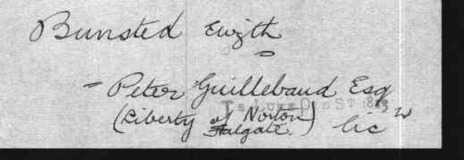 Bunsted Ewgth
- Peter Guillebaud Esq
(Liberty of Norton
Falgate.) lic